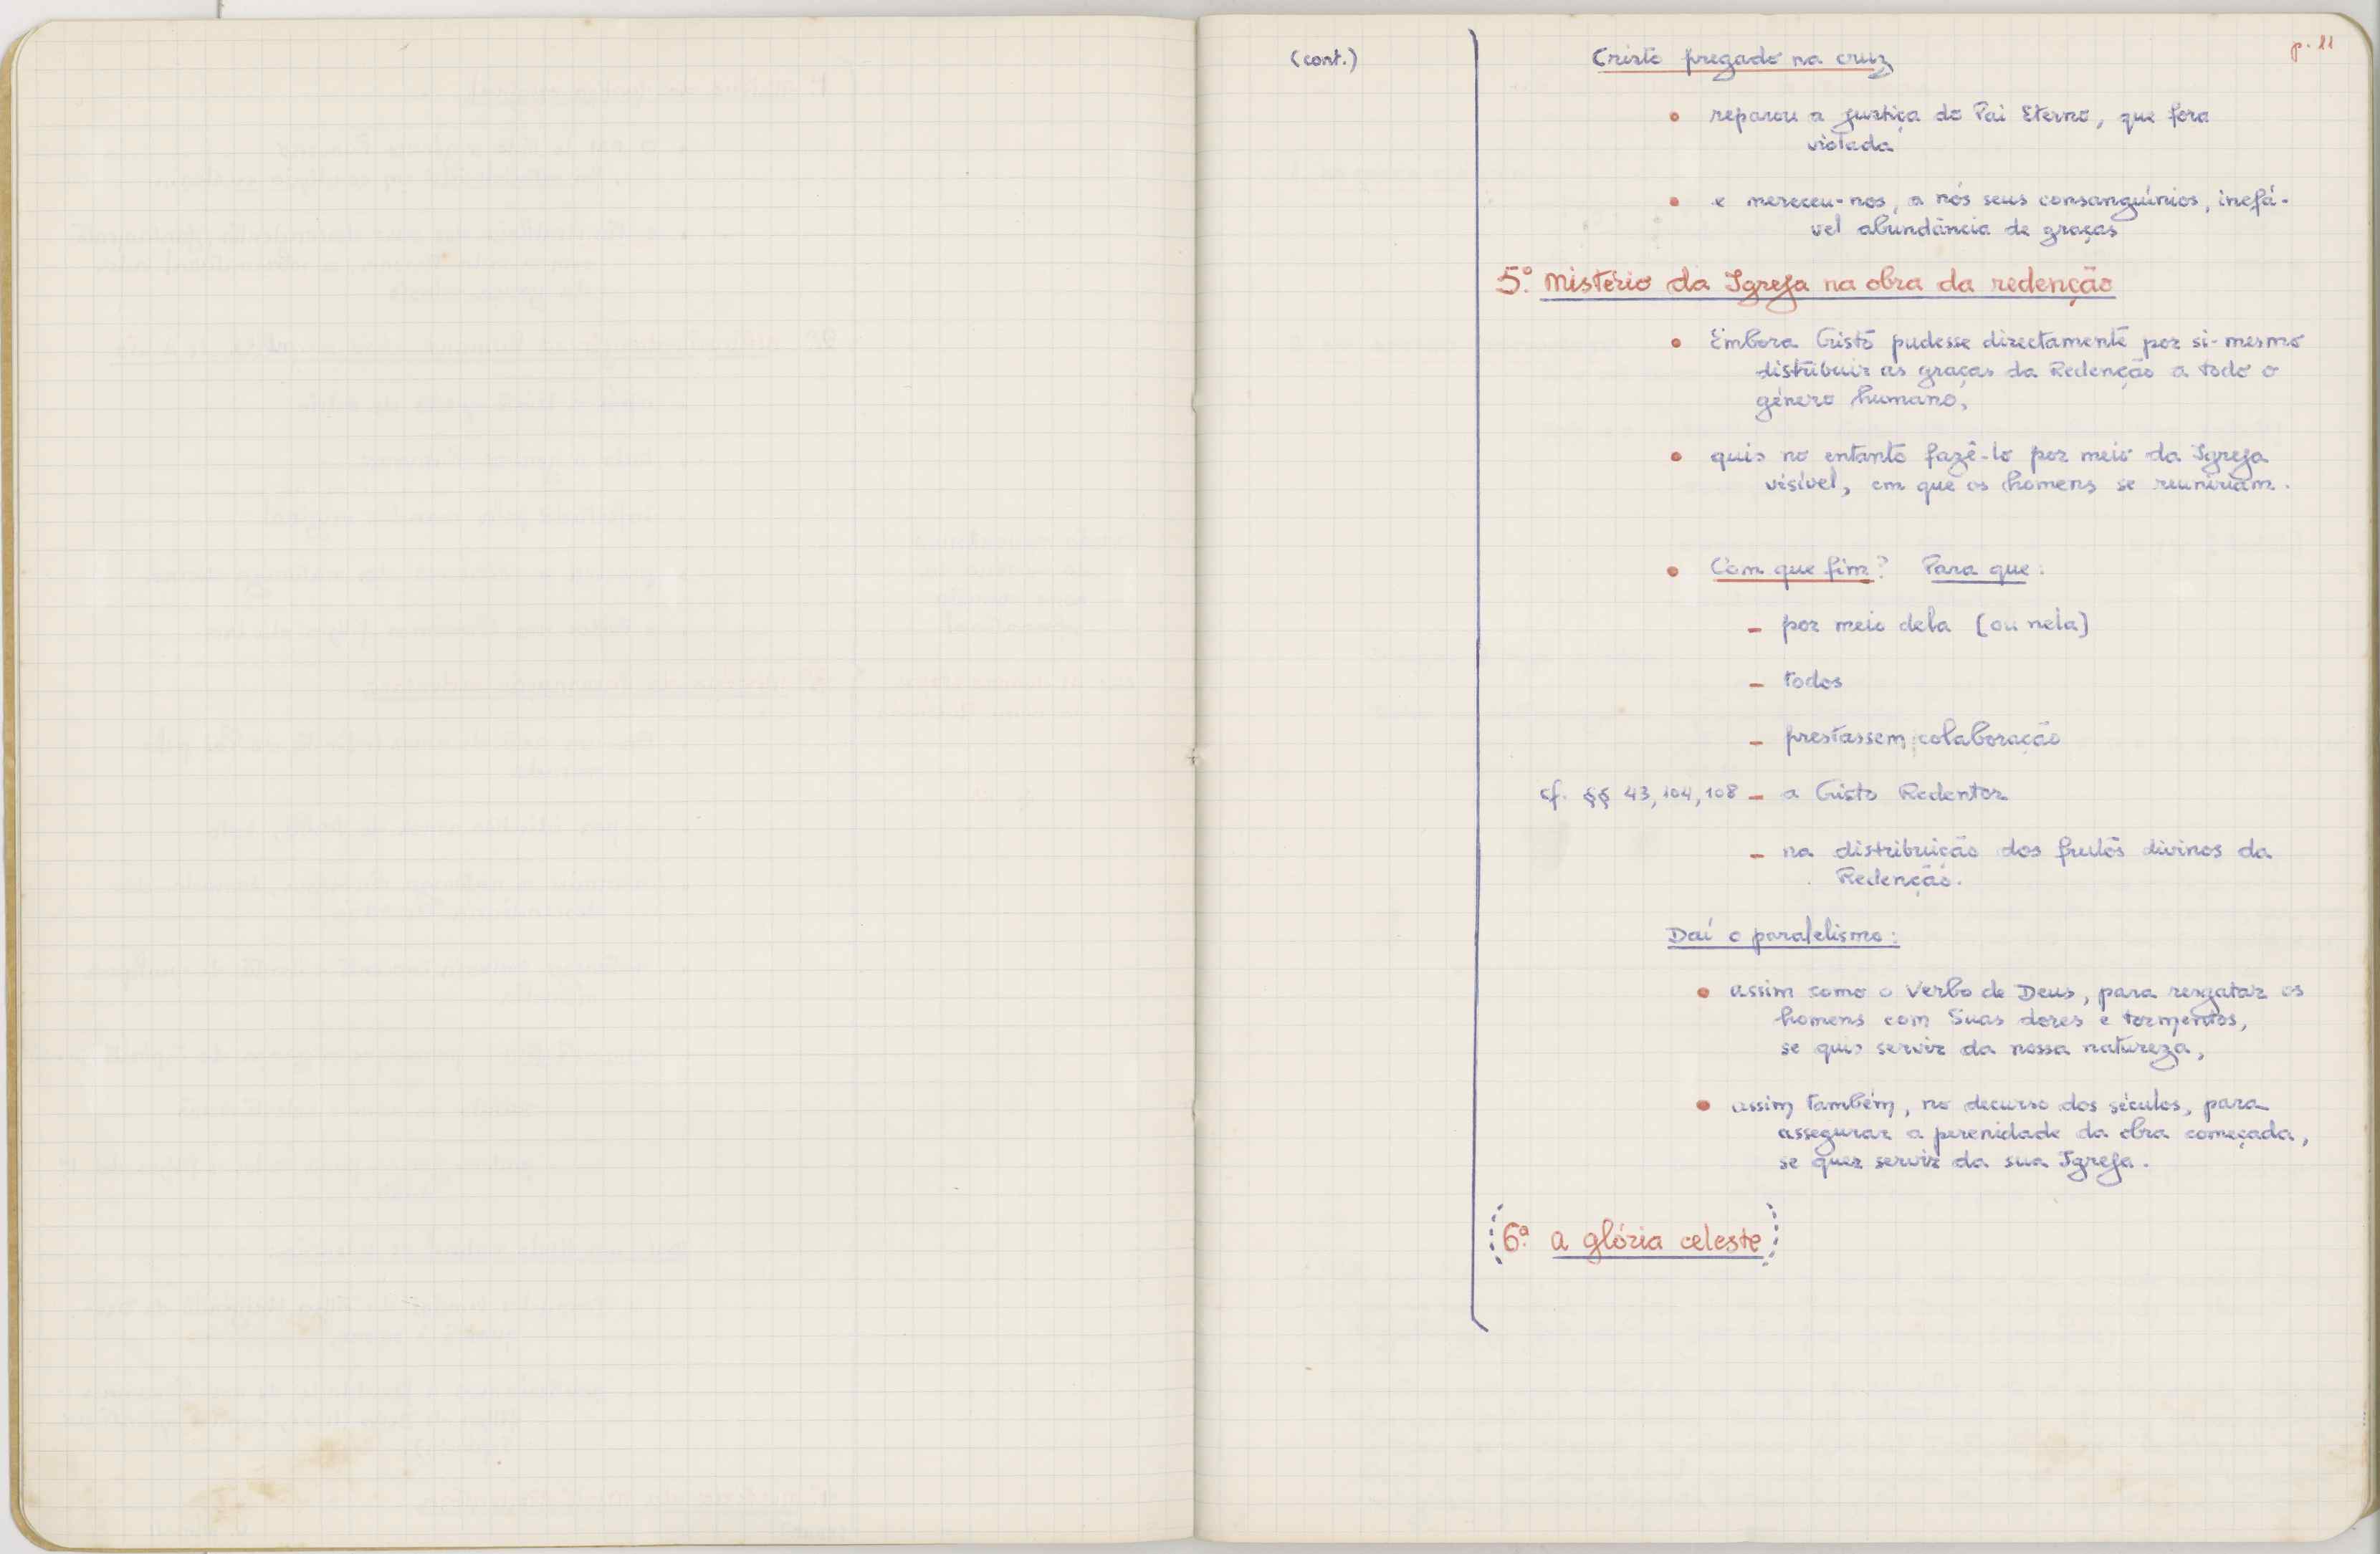 p. 11
(cont.)
Cristo pregado na cruz
• reparou a justiça do Pai Eterno, que fora
violada
• e mereceu-nos, a nós seus consanguínios, inefá-
vel abundância de graças
5º. Mistério da Igreja na obra da redenção
• Embora Cristo pudesse directamente por si-mesmo
distribuir as graças da Redenção a todo o
género humano,
• quis no entanto fazê-lo por meio da Igreja
visível, em que os homens se reuniriam.
• Com que fim? Para que:
– por meio dela (ou nela)
– todos
– prestassem colaboração
cf. §§ 43, 104, 108 – a Cristo Redentor
– na distribuição dos frutos divinos da
Redenção.
Daí o paralelismo:
• assim como o Verbo de Deus, para resgatar os
homens com Suas dores e tormentos,
se quis servir da nossa natureza,
• assim também, no decurso dos séculos, para
assegurar a perenidade da obra começada,
se quer servir da sua Igreja.
(6ª. a glória celeste)